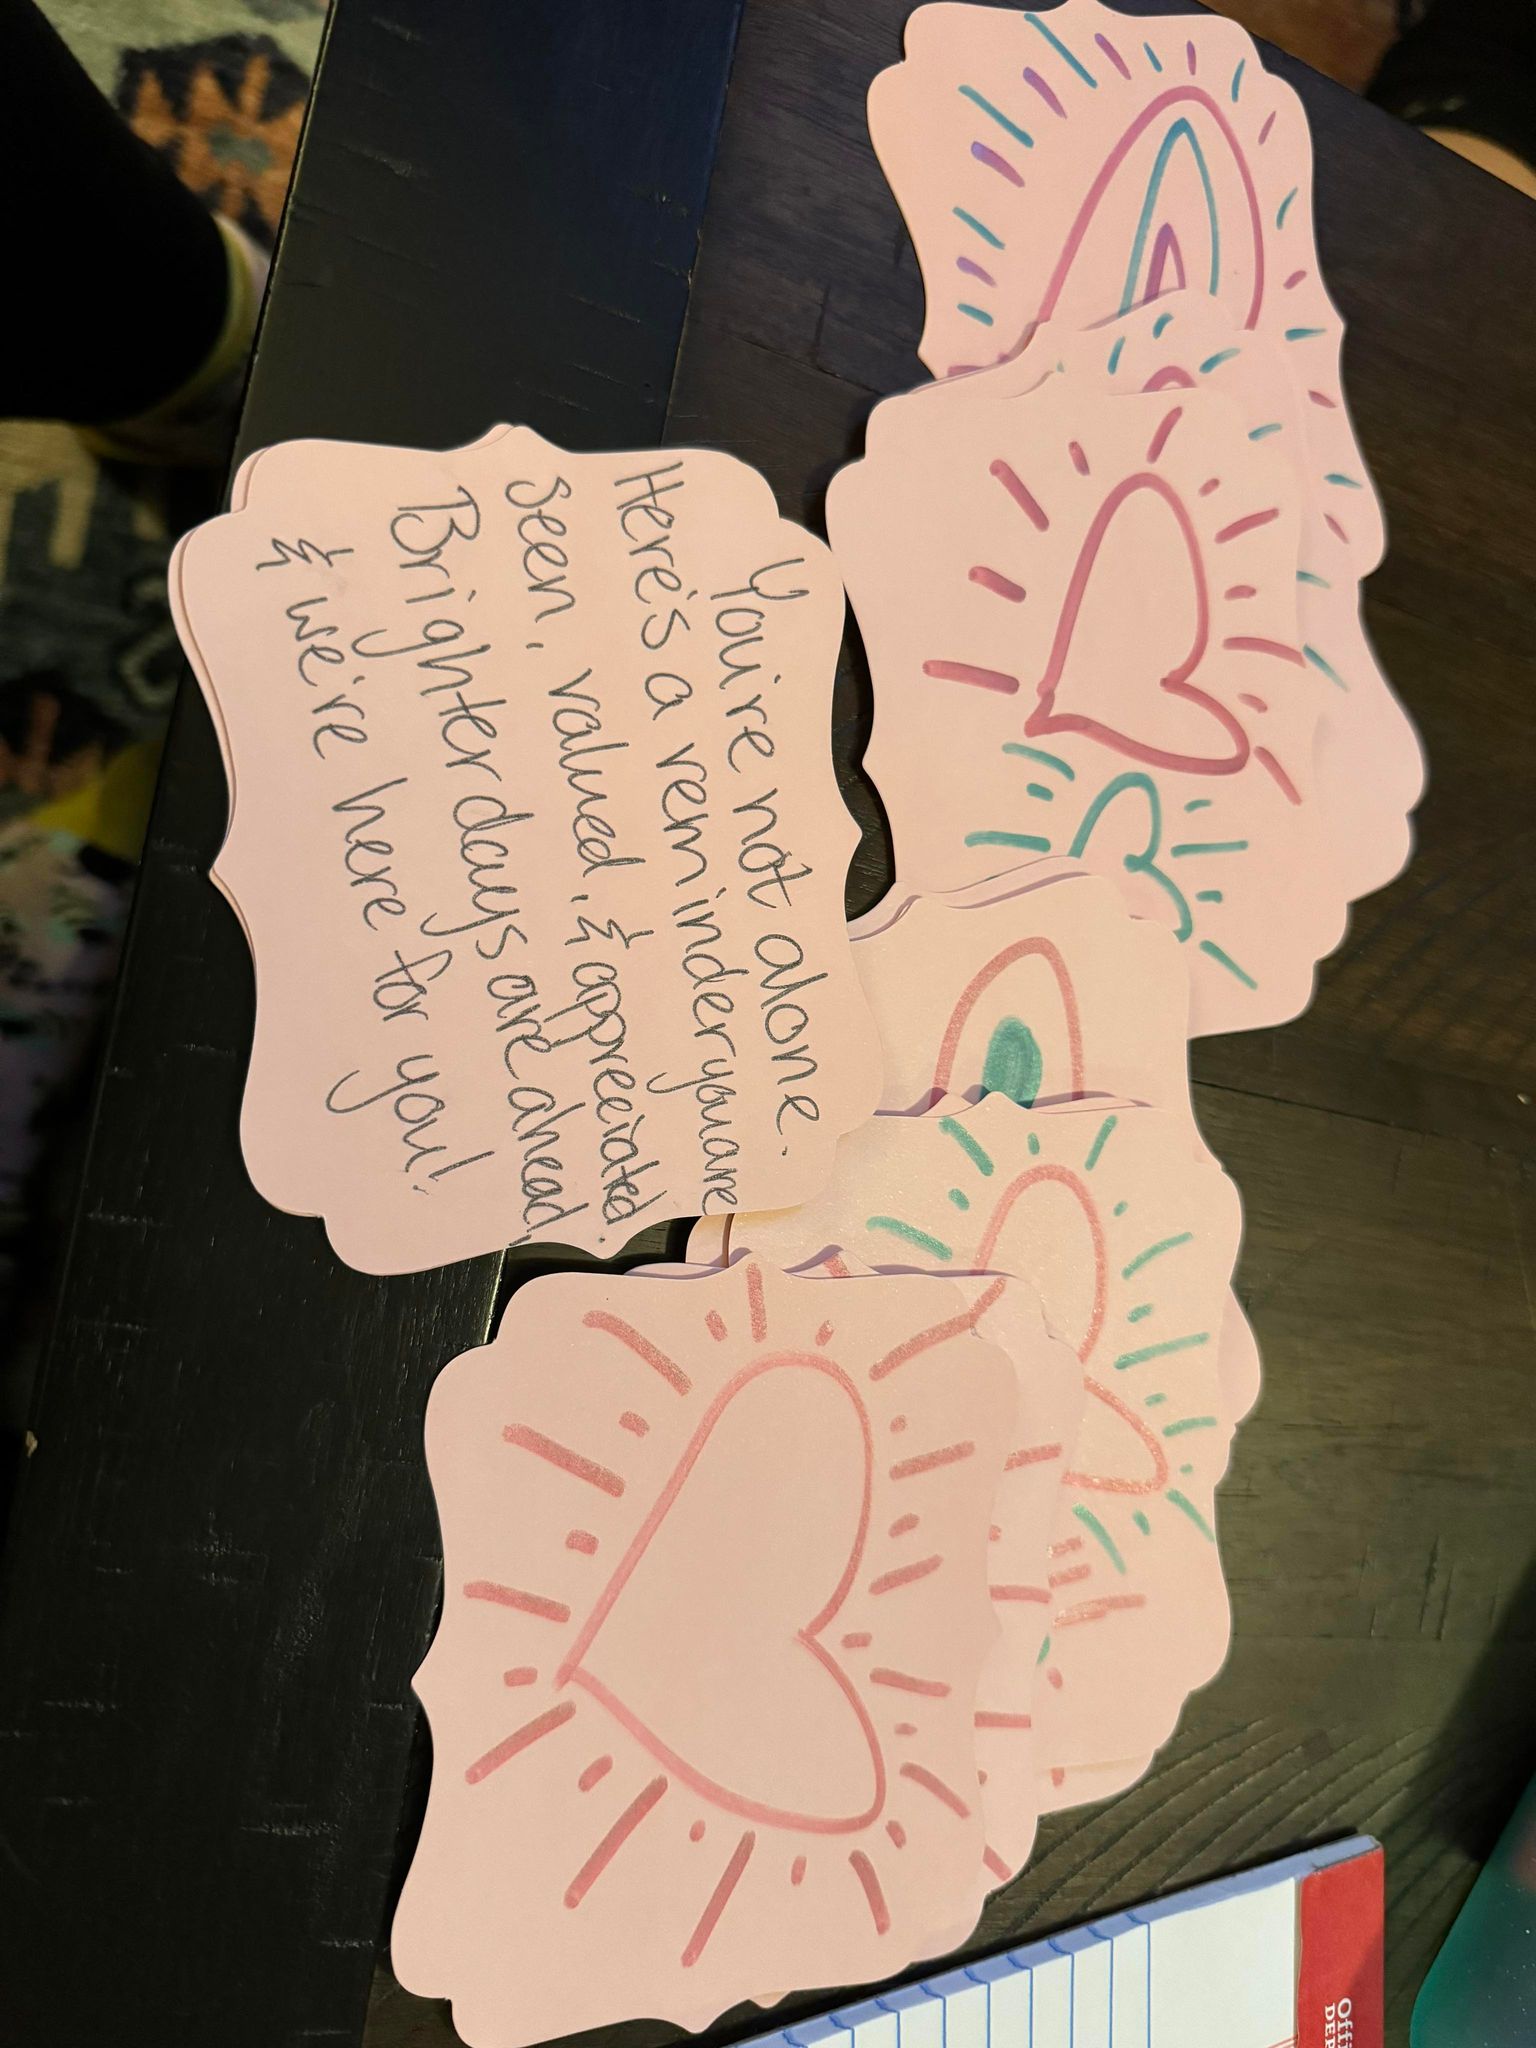 You're not alone.
Here's a reminder you are
seen, valued, & appreciated.
Brighter days are ahead,
& we're here for you!
Offi
DEP